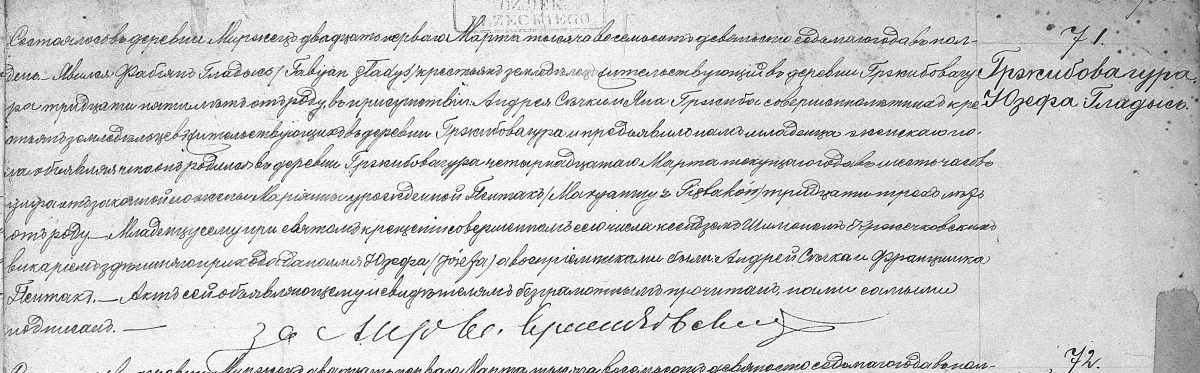 OZDEK.
RZECKIEGO.
Состоялось въ деревни Миржецъ двадцать перваго Марта тысяча восемьсотъ девяносто седьмаго года въ пол-
71.
день. Явился Фабіянъ Гладысь /Fabijan Gładyś/ крестьянъ земледѣлецъ жительствующій въ деревни Гржибовагу
Гржибовагура
ра тридцати пяти лѣтъ отъ роду, въ присутствіи Андрея Сячка и Яна Гржиба совершеннолѣтнихъ кре
Юзефа Гладысь
стьянъ земледѣльцевъ жительствующихъ въ деревни Гржибовагура и предъявилъ намъ младенца женскаго по-
ла объявляя что онъ родился въ деревни Гржибовагура четырнадцатаго Марта текущаго года въ шесть часовъ
утра отъ законной его жены Маріянны урожденной Пентакъ /Maryanny z / тридцати трехъ лѣтъ
отъ роду. — Младенцу сему при святомъ крещеніи совершенномъ сего числа ксендзомъ Шимономъ
викаріемъ здѣшняго прихода дано имя Юзефа /Józefa/ а воспріемниками были Андрей Сячка и Францишка
Пентакъ. — Актъ сей объявляющему и свидѣтелямъ безграмотнымъ прочитанъ, нами самыми
подписанъ. —
72.
двадцать перваго Марта тысяча восемьсотъ девяносто седьмаго года въ пол-